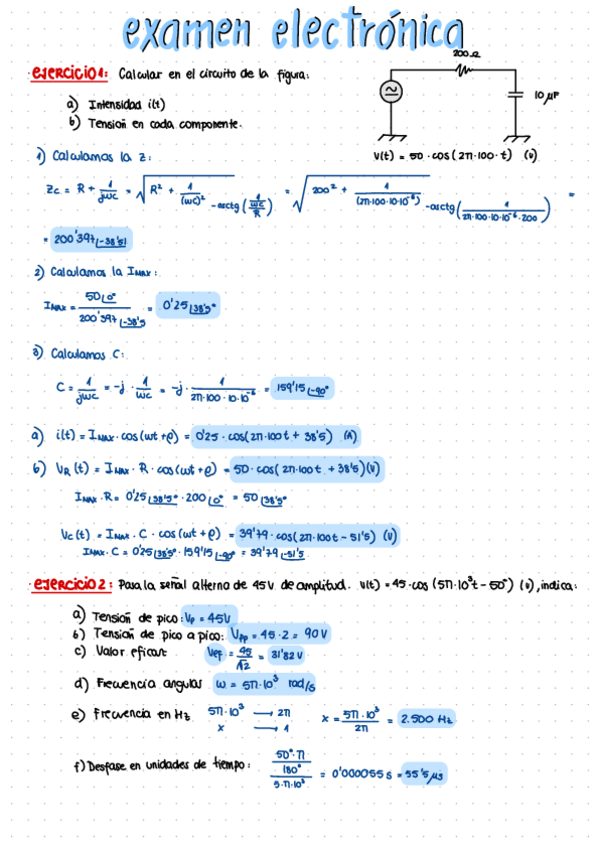 examen electrónica
EJERCICIO 1: Calcular en el circuito de la figura:
200 Ω
10 μF
a) Intensidad i(t)
b) Tensión en cada componente.
V(t) = 50 · cos (2π · 100 · t) (v)
1) Calculamos la Z:
Zc = R + 1/jωC = √(R² + 1/(ωC)²) -arctg (1/ωC / R) = √(200² + 1/(2π·100·10·10⁻⁶)) -arctg (1/2π·100·10·10⁻⁶·200) =
= 200'397∠-38'5|
2) Calculamos la Imax:
Imax = 50∠0° / 200'397∠-38'5 = 0'25∠38'5°
3) Calculamos C:
C = 1/jωC = -j · 1/ωC = -j · 1/2π·100·10·10⁻⁶ = 159'15∠-90°
a) i(t) = Imax · cos (ωt + φ) = 0'25 · cos (2π · 100t + 38'5) (A)
b) VR (t) = Imax · R · cos (ωt + φ) = 50 · cos (2π · 100t + 38'5) (v)
Imax · R = 0'25∠38'5° · 200∠0° = 50∠38'5°
Vc (t) = Imax · C · cos (ωt + φ) = 39'79 · cos (2π · 100t - 51'5) (v)
Imax · C = 0'25∠38'5° · 159'15∠-90° = 39'79∠-51'5
EJERCICIO 2: Pasa la señal alterna de 45V de amplitud. V(t) = 45 · cos (5π · 10³t - 50°) (v), indica:
a) Tensión de pico: Vp = 45V
b) Tensión de pico a pico: Vpp = 45 · 2 = 90V
c) Valor eficaz: Vef = 45/√2 = 31'82 V
d) Frecuencia angular ω = 5π · 10³ rad/s
e) Frecuencia en Hz 5π · 10³ → 2π x = 5π · 10³ / 2π = 2.500 Hz
x → 1
f) Desfase en unidades de tiempo: (50° · π / 180°) / 5·π·10³ = 0'0000555 = 55'5 μs